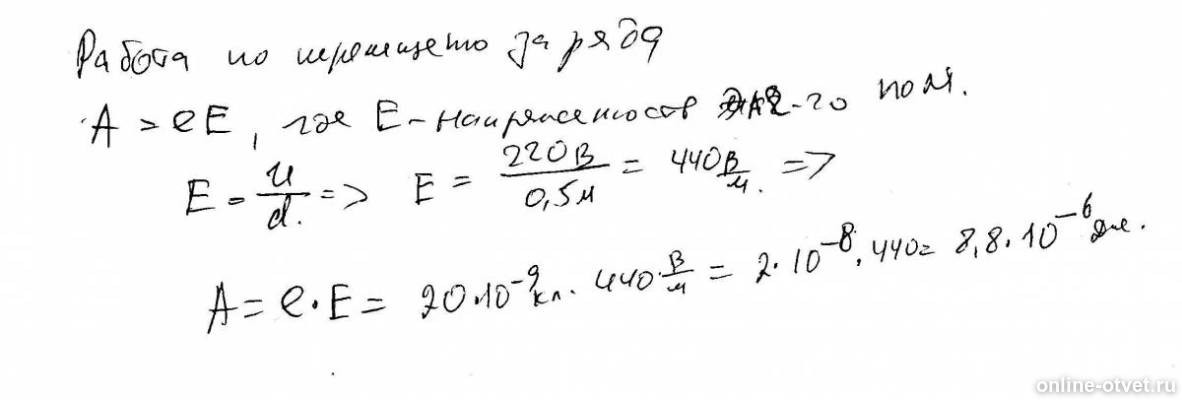 Работа по перемещению заряда
A = eE, где E - напряженность эл-го поля.
E = U/d. => E = 220В/0,5м = 440 В/м. =>
A = e·E = 20·10⁻⁹ кл. 440 В/м = 2·10⁻⁸·440 = 8,8·10⁻⁶ Дж.
online-otvet.ru